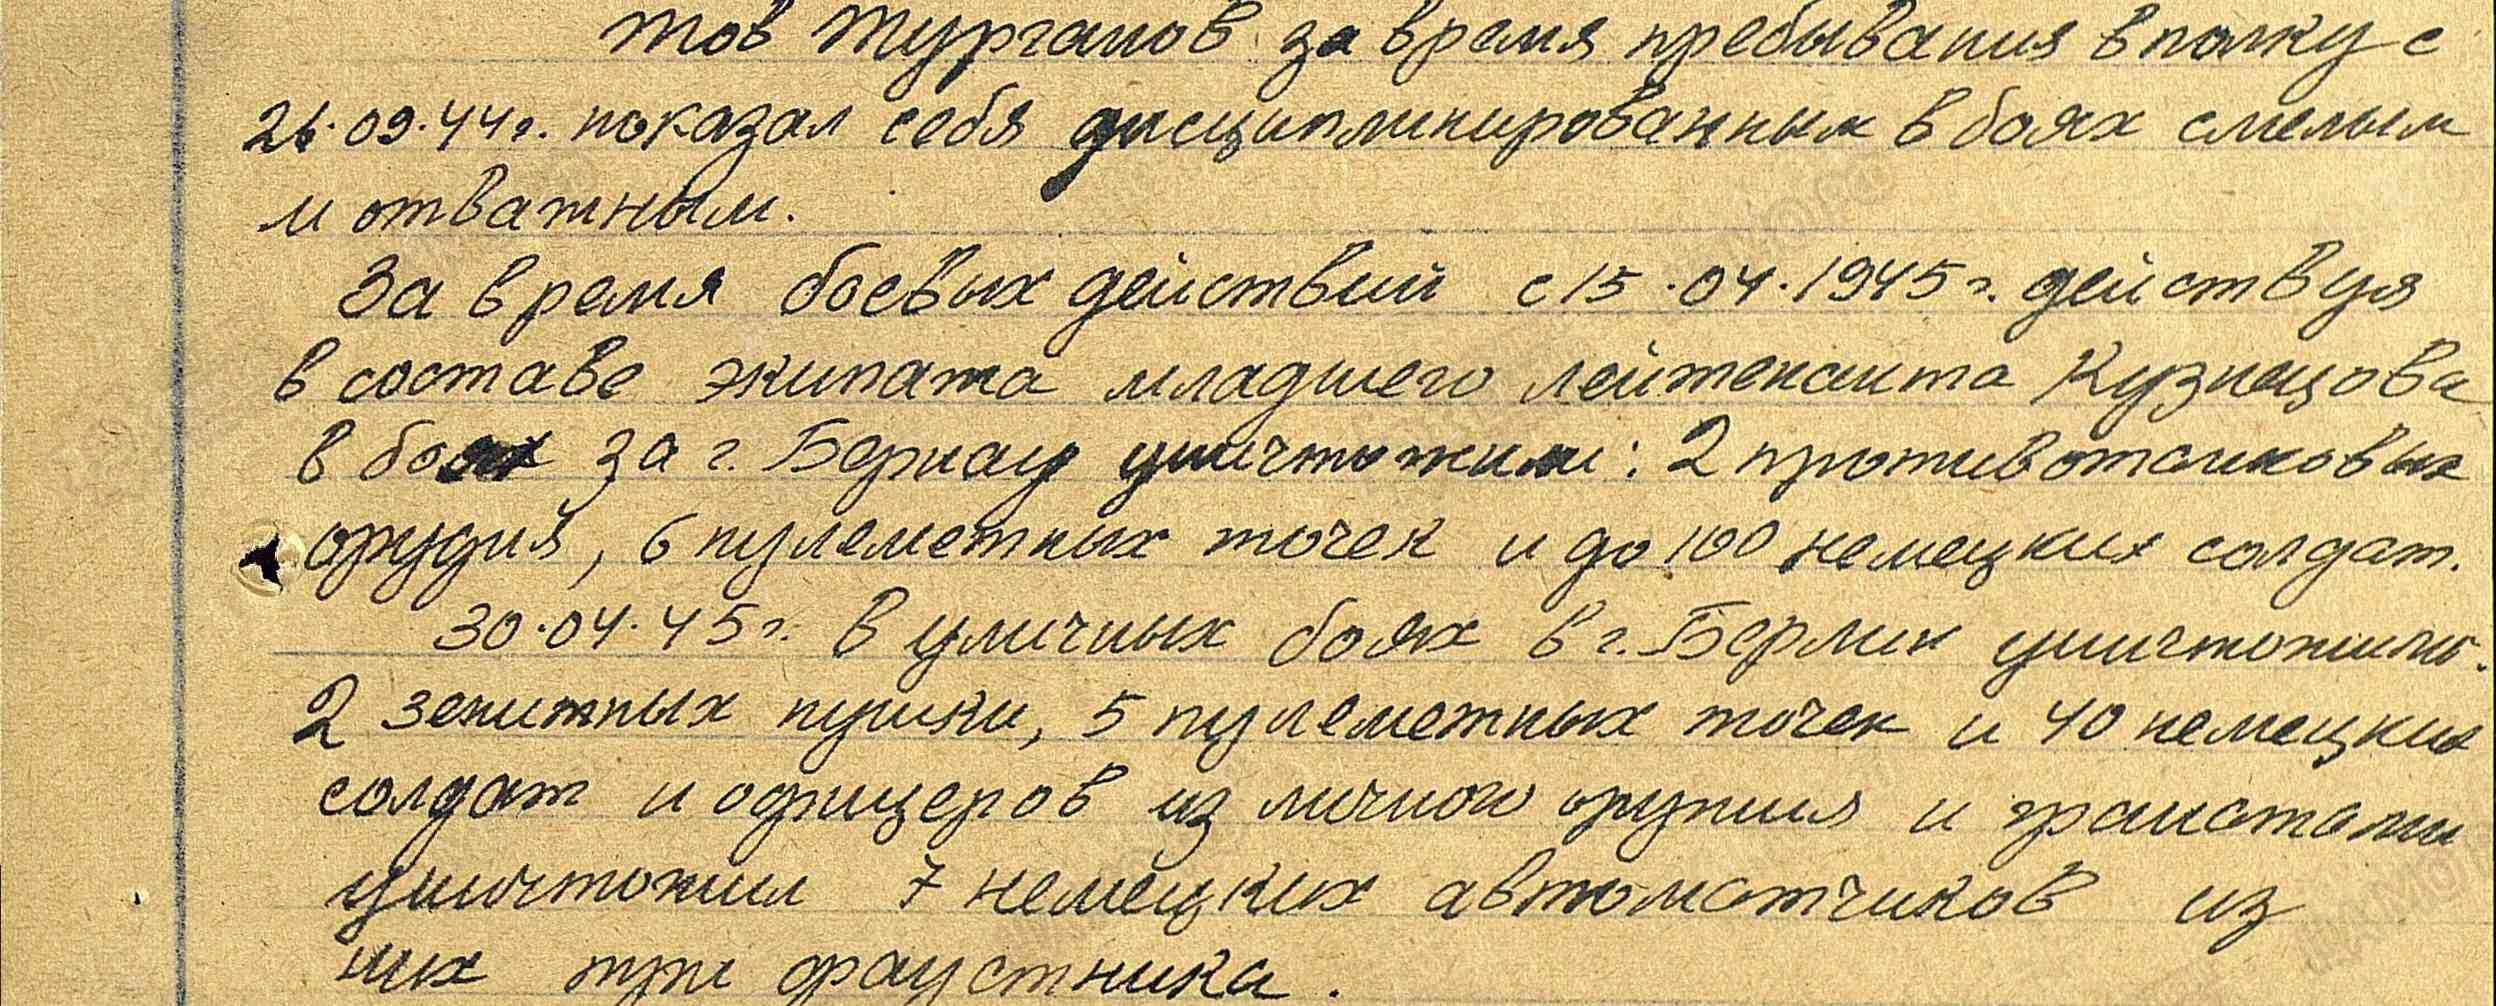 тов Турганов за время пребывания в полку с
26.09.44г. показал себя дисциплинированным в боях смелым
и отважным.
За время боевых действий с 15.04.1945г. действуя
в составе экипажа младшего лейтенанта Кузнецова
в боях за г. Бернау уничтожили: 2 противотанковых
орудия, 6 пулеметных точек и до 100 немецких солдат.
30.04.45г. в уличных боях в г. Берлин уничтожили
2 зенитных пушки, 5 пулеметных точек и 40 немецких
солдат и офицеров из личного оружия и гранатами
уничтожил 7 немецких автоматчиков из
них три фаустника.